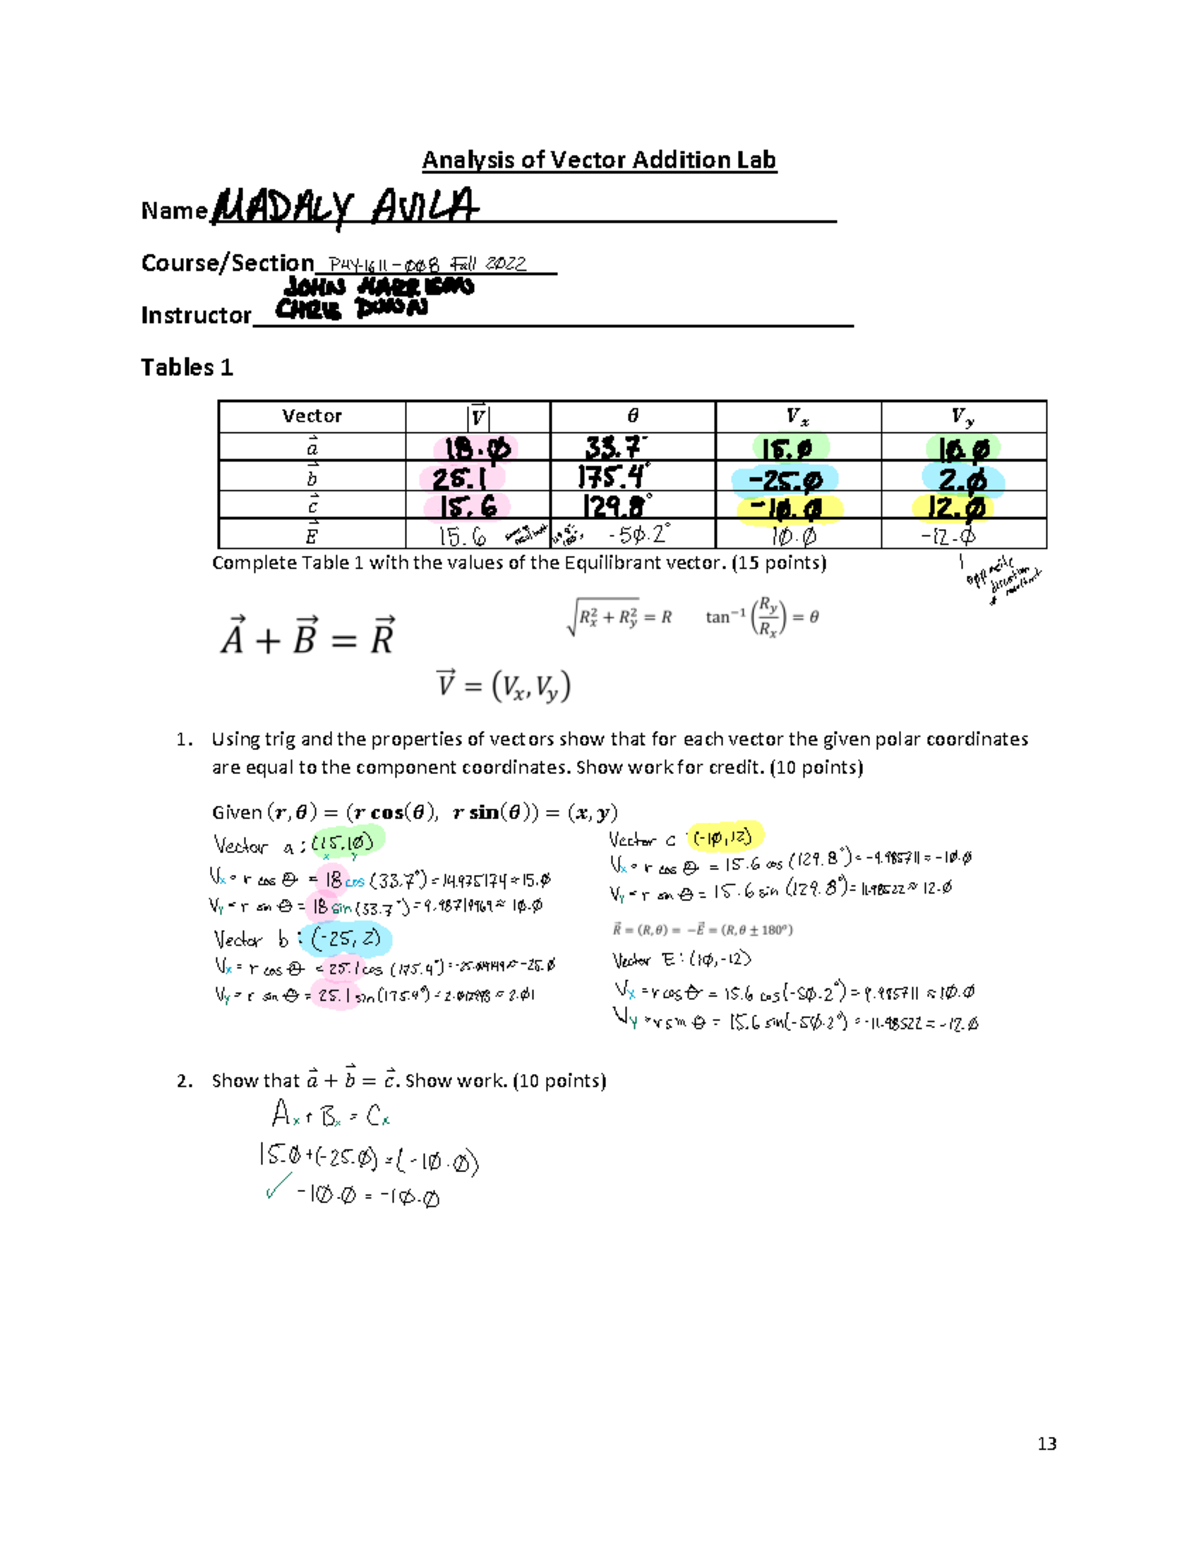 Analysis of Vector Addition Lab
Name MADALY AVILA
Course/Section PHY-1611-008 Fall 2022
JOHN HARRISON
Instructor CHRIS DUNN
Tables 1
Vector |V⃗| θ Vₓ Vᵧ
a⃗ 18.0 33.7° 15.0 10.0
b⃗ 25.1 175.4° -25.0 2.0
c⃗ 15.6 129.8° -10.0 12.0
E⃗ 15.6 -50.2° 10.0 -12.0
Complete Table 1 with the values of the Equilibrant vector. (15 points)
opposite direction
A⃗ + B⃗ = R⃗
√(Rₓ² + Rᵧ²) = R tan⁻¹(Rᵧ/Rₓ) = θ
V⃗ = (Vₓ, Vᵧ)
1. Using trig and the properties of vectors show that for each vector the given polar coordinates
are equal to the component coordinates. Show work for credit. (10 points)
Given (r, θ) = (r cos(θ), r sin(θ)) = (x, y)
Vector a: (15,10)
x y
Vx = r cos θ = 18 cos (33.7°) = 14.975174 ≈ 15.0
Vy = r sin θ = 18 sin (33.7°) = 9.98719969 ≈ 10.0
Vector b: (-25, 2)
Vx = r cos θ = 25.1 cos (175.4°) = -25.0 ≈ -25.0
Vy = r sin θ = 25.1 sin (175.4°) = 2.012998 ≈ 2.01
Vector c: (-10,12)
Vx = r cos θ = 15.6 cos (129.8°) = -9.985711 = -10.0
Vy = r sin θ = 15.6 sin (129.8°) = 11.98522 ≈ 12.0
R⃗ = (R, θ) = −E⃗ = (R, θ ± 180°)
Vector E: (10,-12)
Vx = r cos θ = 15.6 cos(-50.2°) = 9.985711 ≈ 10.0
Vy = r sin θ = 15.6 sin(-50.2°) = -11.98522 = -12.0
2. Show that a⃗ + b⃗ = c⃗. Show work. (10 points)
Ax + Bx = Cx
15.0 + (-25.0) = (-10.0)
✓ -10.0 = -10.0
13